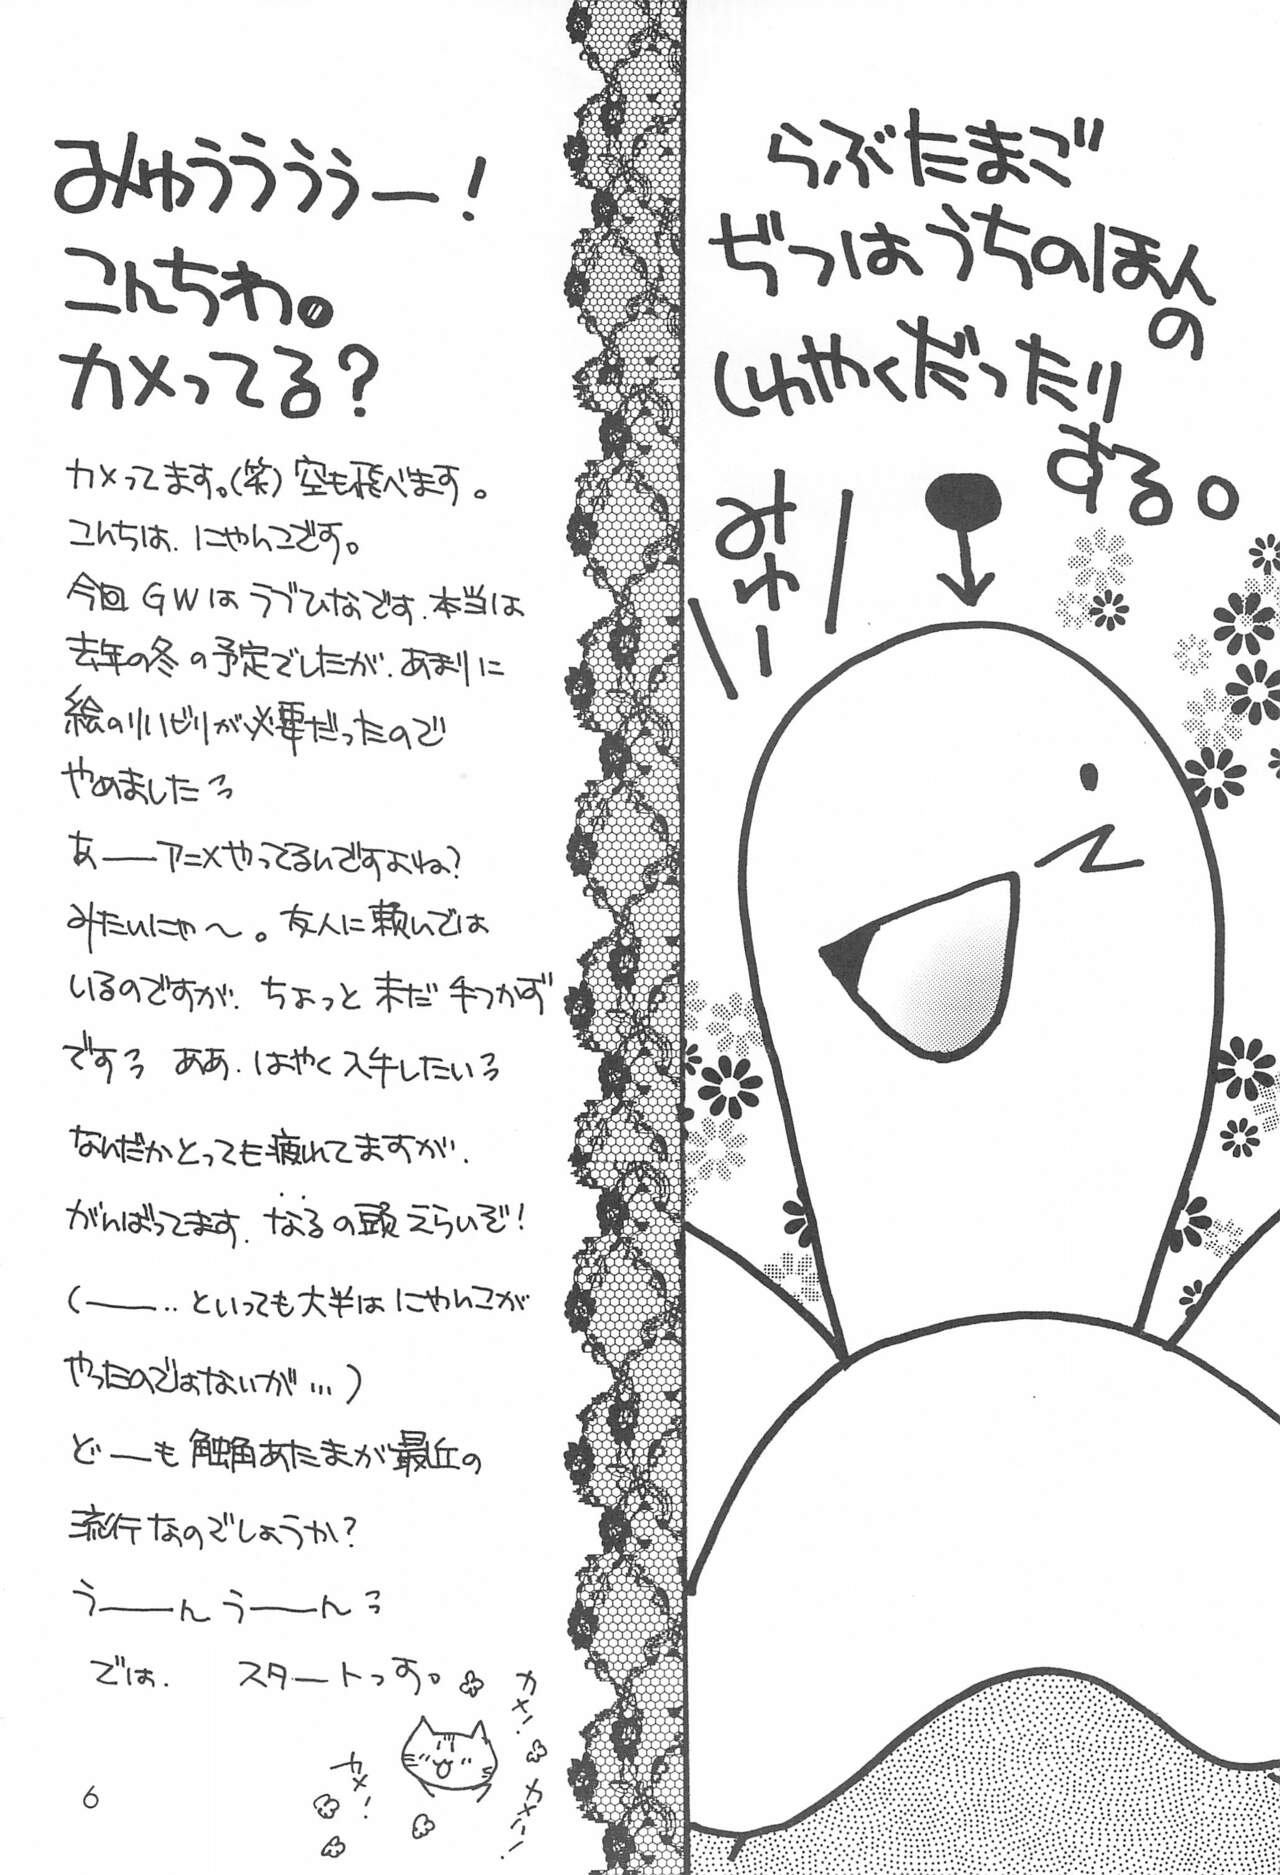 みゅぅぅぅぅー!
こんちわ。
カメってる?
カメってます。(笑)空も飛べます。
こんちは、にゃんこです。
今回GWはラブひなです、本当は
去年の冬の予定でしたが、あまりに
絵のリハビリが必要だったので
やめましたっ
あーーアニメやってるんですよね?
みたいにゃ〜。友人に頼んでは
いるのですが、ちょっと未だ手つかず
ですっ ああ、はやく入手したいっ
なんだかとっても疲れてますが、
がんばってます、なるの頭えらいぞ!
(ーー‥といっても大半はにゃんこが
やったのではないが…)
どーーも触角あたまが最近の
流行なのでしょうか?
うーーんうーーんっ
では、 スタートっす。
カメ!
カメ!
カメハー!
6
らぶたまご
ぢつはうちのほんの
しゅやくだったり
する。
みゅー